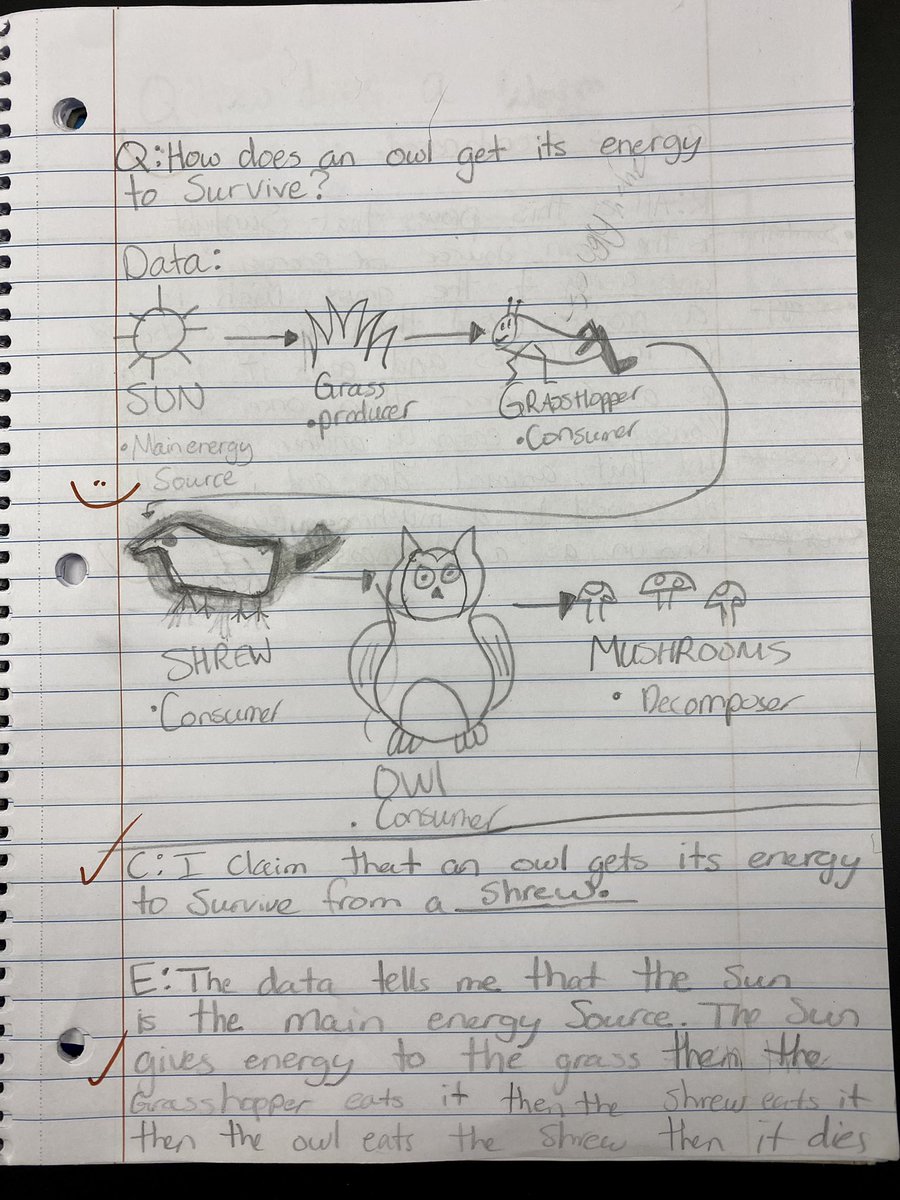 Q: How does an owl get its energy
to Survive?
Data:
SUN
• Main energy
Source
Grass
• producer
GRASSHopper
• Consumer
SHREW
• Consumer
OWl
• Consumer
MUSHROOMS
• Decomposer
C: I Claim that an owl gets its energy
to Survive from a Shrew.
E: The data tells me that the Sun
is the main energy Source. The Sun
gives energy to the grass them the
Grasshopper eats it then the Shrew eats it
then the owl eats the Shrew then it dies